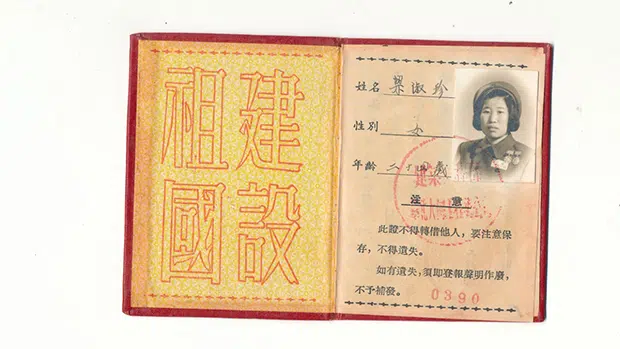 建設
祖國
姓名 梁淑珍
性別 女
年齡 二十 歲
注意
此證不得轉借他人，要注意保
存，不得遺失。
如有遺失，須即登報聲明作廢，
不予補發。
0390